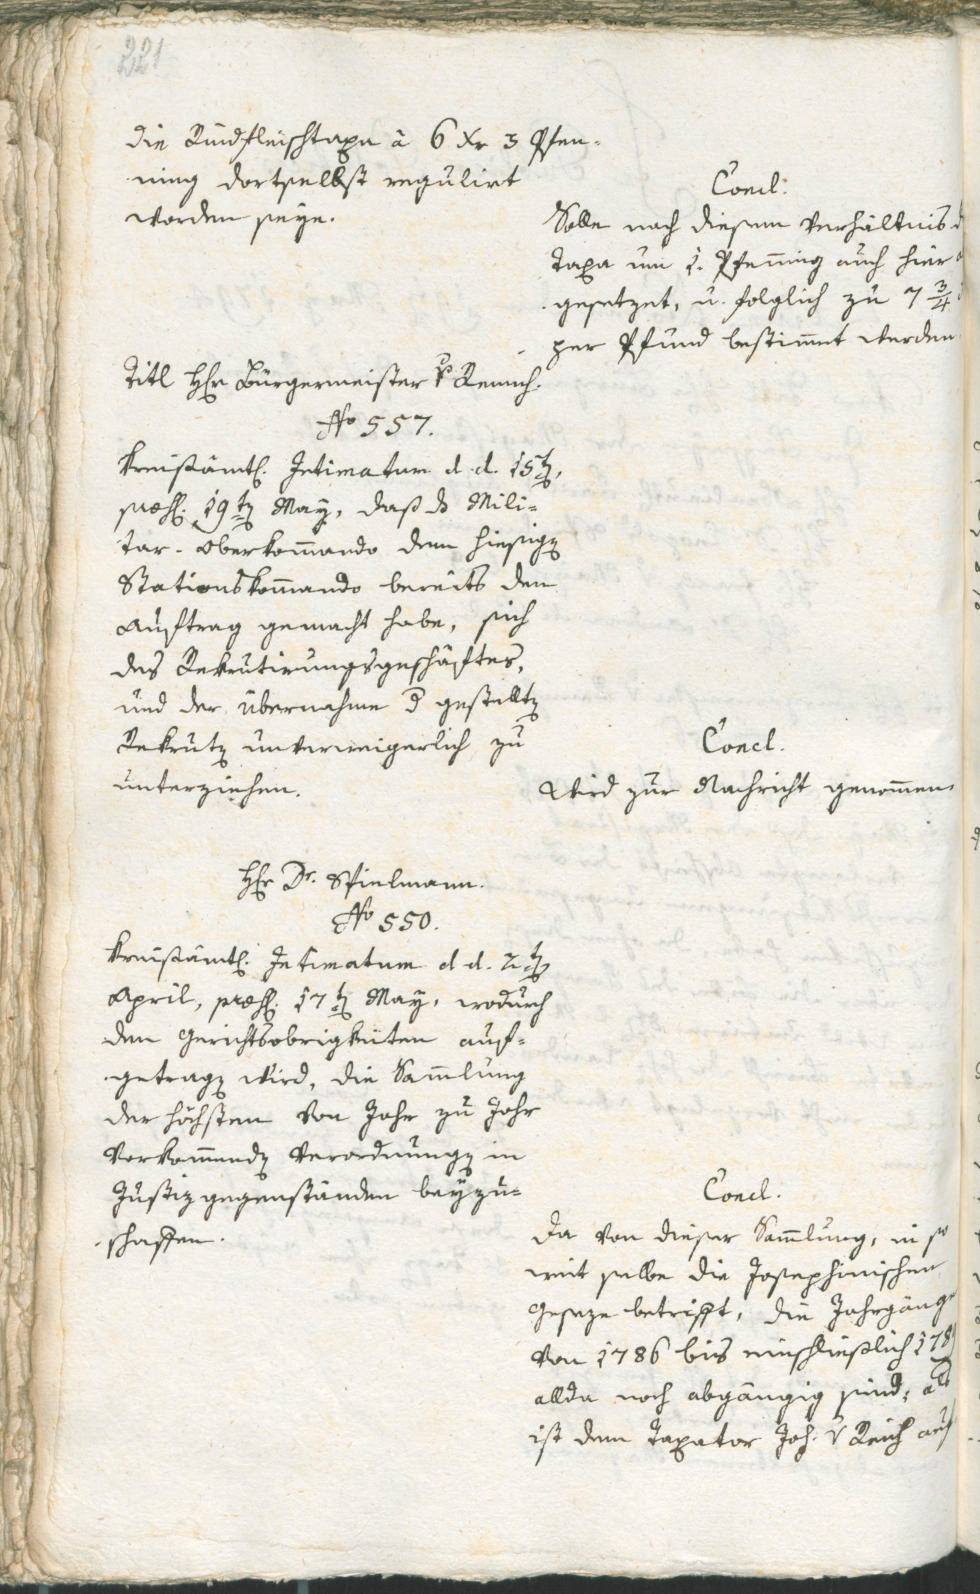 221
die Rindfleischtaxa à 6 xr 3 Pfen-
ning dortselbst regulirt
worden seye.
Concl:
Solle nach diesem Verhältnis
Taxa um 1. Pfenning auch hier
gesetzet, u. folglich zu 7 3/4
per Pfund bestimmt werden
Titl Hr Bürgermeister v Remich.
No 557.
Kreißämtl. Intimatum d. d. 15t,
præs. 19t May, daß d Mili-
tar-Oberkommando dem hiesig
Stationskommando bereits den
Auftrag gemacht habe, sich
des Rekrutirungsgeschäftes,
und der übernahme d gestellt
Rekrut unverweigerlich zu
unterziehen.
Concl.
Wird zur Nachricht genommen
Hr Dr. Spielmann.
No 550.
Kreißämtl. Intimatum d d. 2t
April, præs. 17t May, wodurch
den Gerichtsobrigkeiten auf-
getrag wird, die Sammlung
der höchsten von Jahr zu Jahr
Vorkommend Verordnung in
Justizgegenständen beyzu-
schaffen.
Concl.
Da von dieser Sammlung, in so
weit selbe die Josephinischen
Geseze betrifft, die Jahrgäng
Von 1786 bis einschließlich 178
allda noch abgängig sind, als
ist dem Taxator Joh. v Reich auf